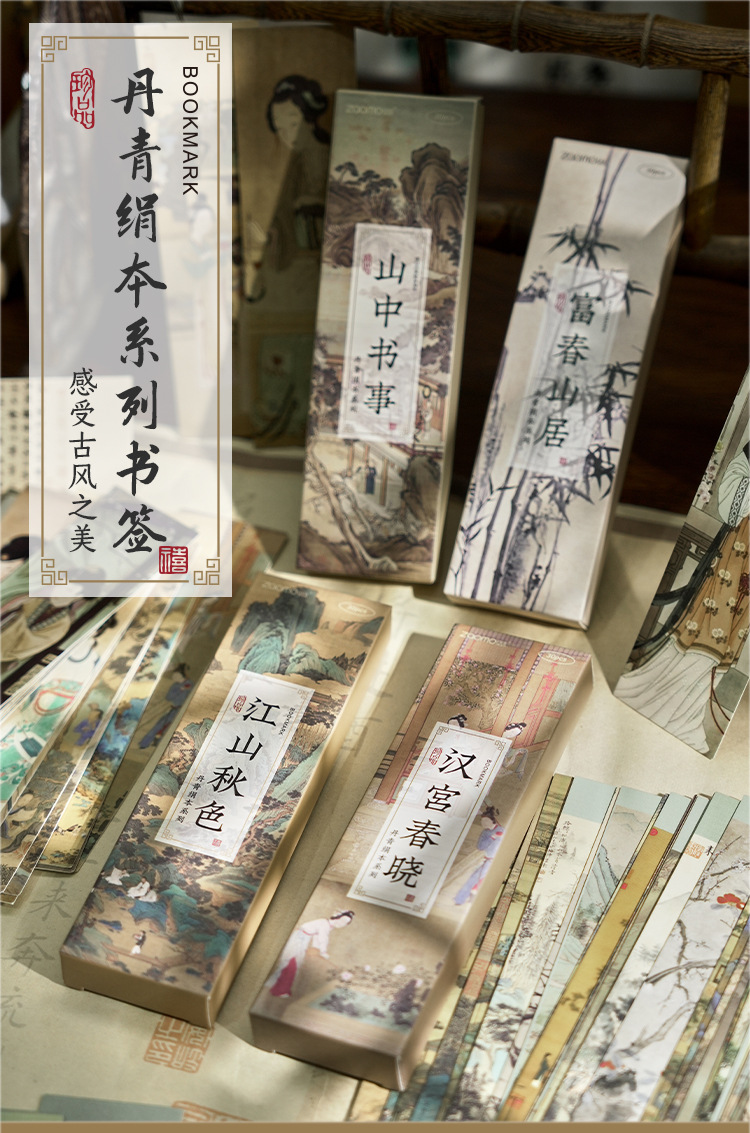 BOOKMARK
丹青绢本系列书签
感受古风之美
珍品
禧
山中书事
丹青绢本系列
富春山居
江山秋色
BOOKMARK
丹青绢本系列
汉宫春晓
BOOKMARK
丹青绢本系列
来奔流